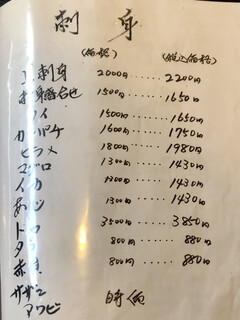 刺身
(価格) (税込価格)
刺身 2000円……2200円
1500円……1650円
1500円……1650円
カンパチ 1600円……1750円
ヒラメ 1800円……1980円
マグロ 1300円……1430円
イカ 1300円……1430円
あじ 1300円……1430円
3500円……3850円
タコ 800円……880円
赤貝 800円……880円
サザエ
アワビ 時価